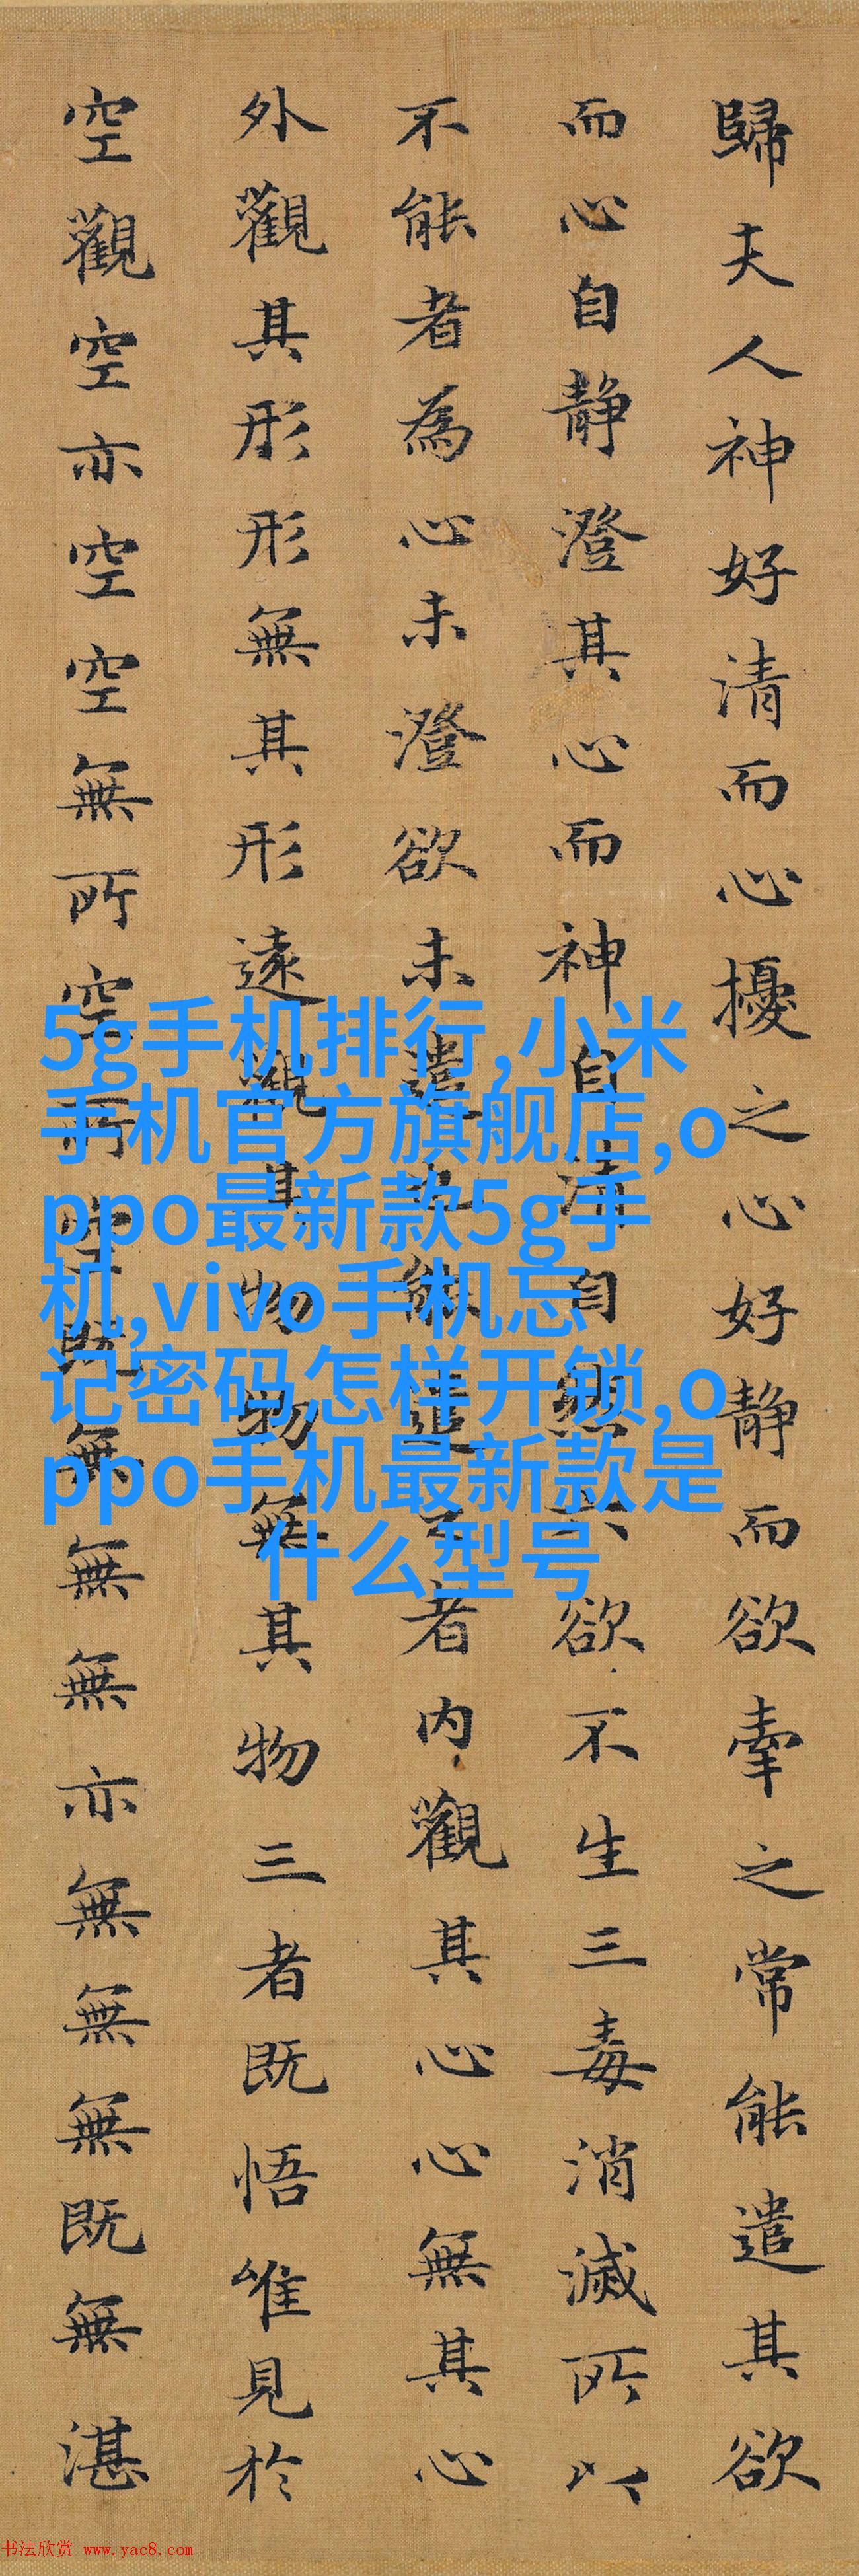 歸夫人神好清而心擾之心好靜而欲牽之常能遣其欲
而心自靜澄其心而神自清自然六欲不生三毒消滅所以
不能者為心未澄欲未遣也能遣之者内觀其心心無其心
外觀其形形無其形遠觀其物物無其物三者既悟唯見於
空觀空亦空空無所空所空既無無無亦無無無既無湛
5g手机排行,小米
手机官方旗舰店,o
ppo最新款5g手
机,vivo手机忘
记密码怎样开锁,o
ppo手机最新款是
什么型号
书法欣赏 www.yac8.com